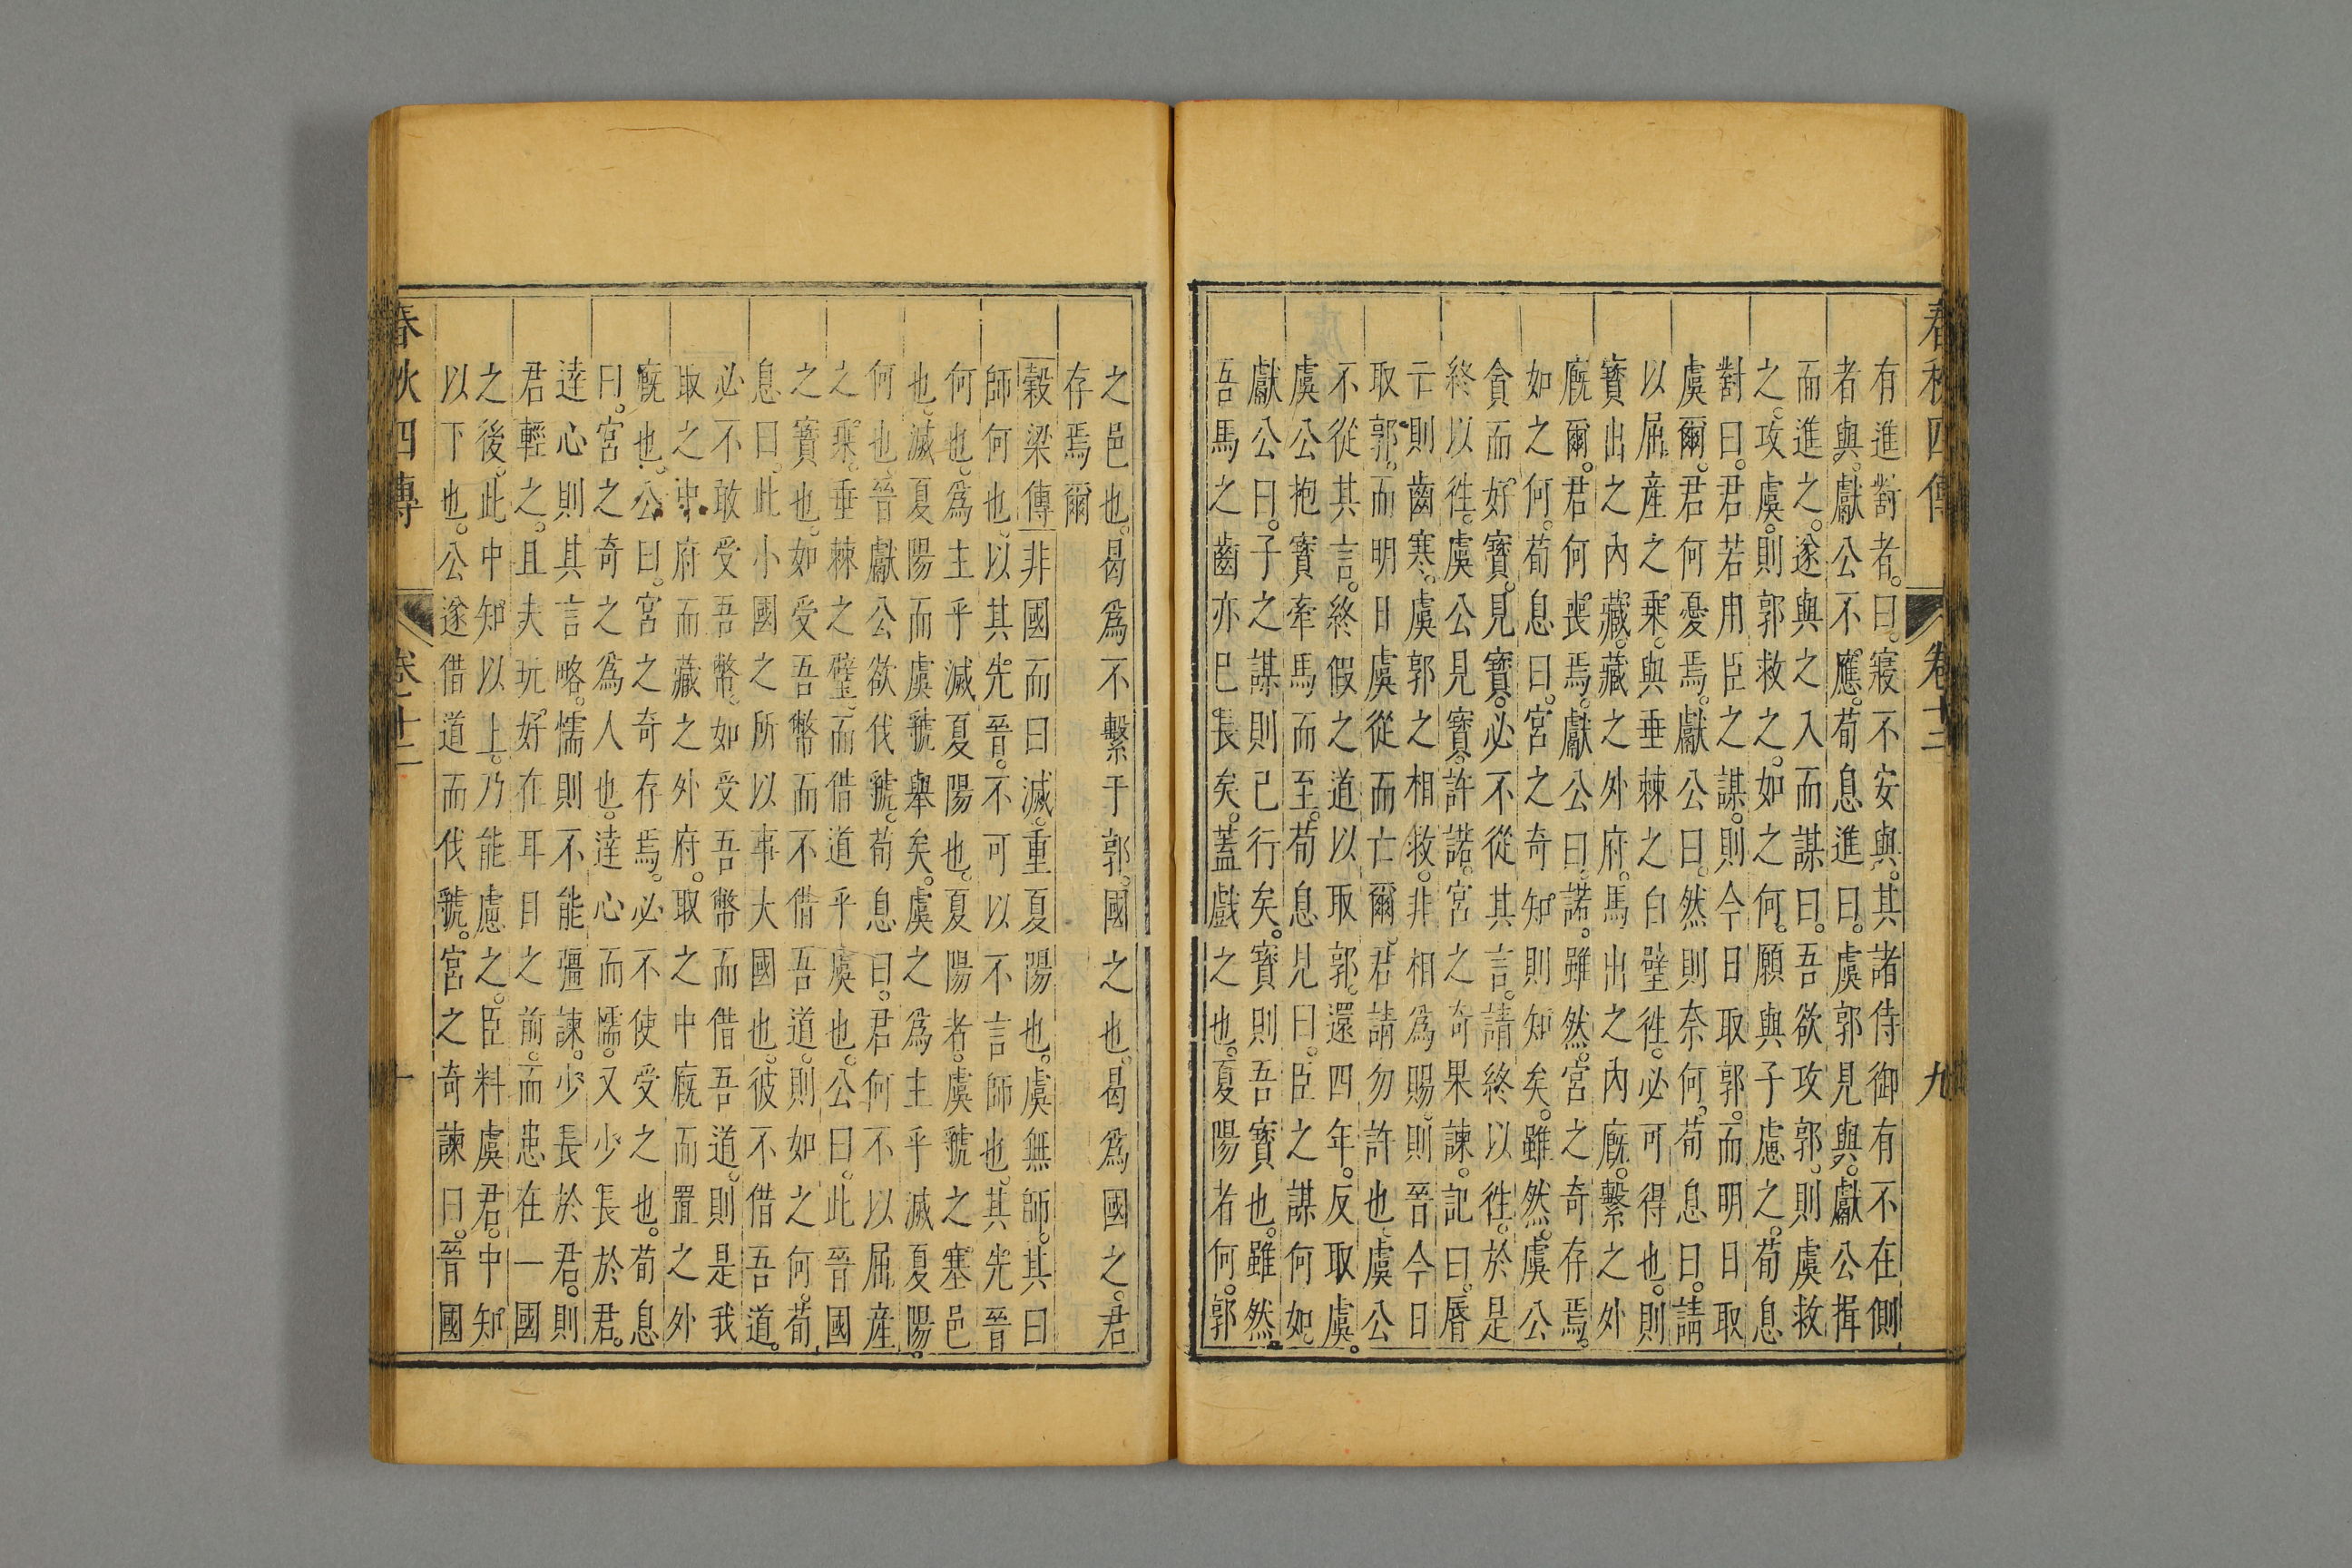 春秋四傳 卷十二 九
有進對者。曰。寢不安與。其諸侍御有不在側
者與。獻公不應。荀息進曰。虞郭見與。獻公揖
而進之。遂與之入而謀曰。吾欲攻郭。則虞救
之。攻虞。則郭救之。如之何。願與子慮之。荀息
對曰。君若用臣之謀。則今日取郭。而明日取
虞爾。君何憂焉。獻公曰。然則奈何。荀息曰。請
以屈產之乘。與垂棘之白璧往。必可得也。則
寶出之內藏。藏之外府。馬出之內廐。繫之外
廐爾。君何喪焉。獻公曰。諾。雖然。宮之奇存焉。
如之何。荀息曰。宮之奇知。則知矣。雖然。虞公
貪而好寶。見寶。必不從其言。請終以往。於是
終以往。虞公見寶。許諾。宮之奇果諫。記曰。脣
亡則齒寒。虞郭之相救。非相為賜。則晉今日
取郭。而明日虞從而亡爾。君請勿許也。虞公
不從其言。終假之道以取郭。還四年。反取虞。
虞公抱寶牽馬而至。荀息見曰。臣之謀何如。
獻公曰。子之謀則已行矣。寶則吾寶也。雖然。
吾馬之齒亦已長矣。蓋戲之也。夏陽者何。郭
之邑也。曷爲不繫于郭。國之也。曷爲國之。君
存焉爾
穀梁傳 非國而曰滅。重夏陽也。虞無師。其曰
師何也。以其先晉。不可以不言師也。其先晉
何也。爲主乎滅夏陽也。夏陽者。虞虢之塞邑
也。滅夏陽而虞虢舉矣。虞之爲主乎滅夏陽。
何也。晉獻公欲伐虢。荀息曰。君何不以屈產
之乘。垂棘之璧。而借道乎虞也。公曰。此晉國
之寶也。如受吾幣而不借吾道。則如之何。荀
息曰。此小國之所以事大國也。彼不借吾道。
必不敢受吾幣。如受吾幣而借吾道。則是我
取之中府而藏之外府。取之中廐而置之外
廐也。公曰。宮之奇存焉。必不使受之也。荀息
曰。宮之奇之爲人也。達心而懦。又少長於君。
達心則其言略。懦則不能彊諫。少長於君。則
君輕之。且夫玩好在耳目之前。而患在一國
之後。此中知以上。乃能慮之。臣料虞君。中知
以下也。公遂借道而伐虢。宮之奇諫曰。晉國
春秋四傳 卷十二 十